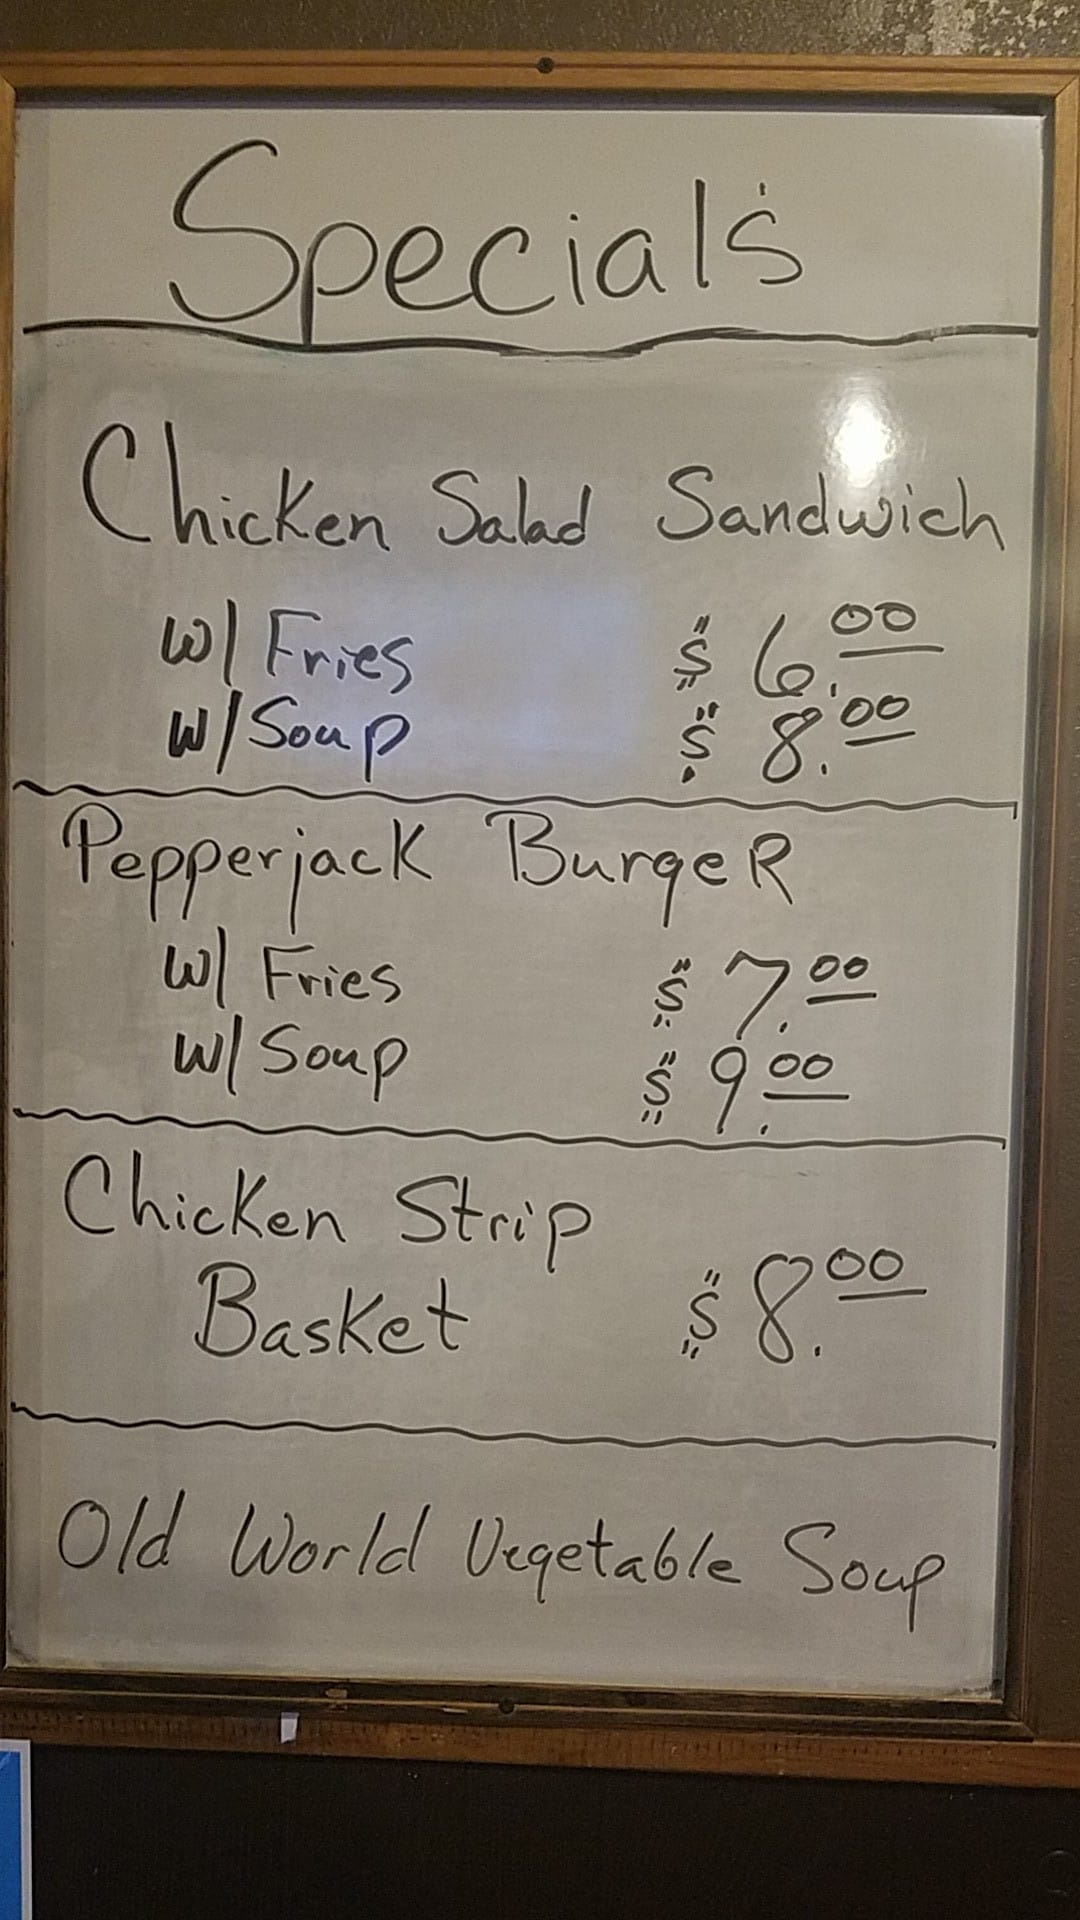 Special's
Chicken Salad Sandwich
W/ Fries $ 6.00
W/ Soup $ 8.00
Pepperjack BurgeR
W/ Fries $ 7.00
W/ Soup $ 9.00
Chicken Strip
Basket $ 8.00
Old World Vegetable Soup